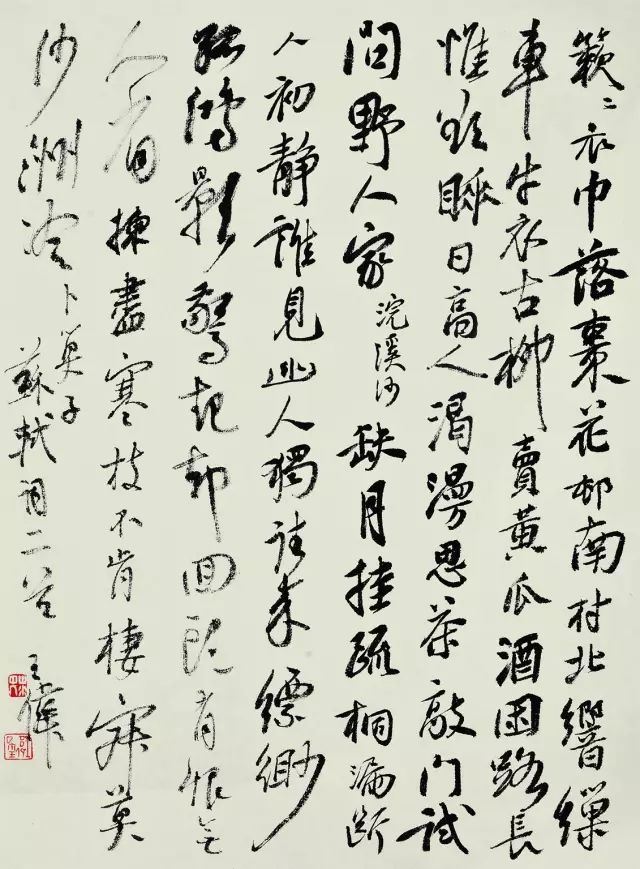 簌〻衣巾落棗花邨南村北響繅
車牛衣古柳賣黃瓜酒困路長
惟欲睡日高人渴漫思茶敲門試
問野人家浣溪沙缺月挂疏桐漏斷
人初靜誰見幽人獨往來縹緲
孤鴻影驚起却回頭有恨無
人省揀盡寒枝不肯棲寂莫
沙洲冷卜算子
蘇軾詞二首
王偉